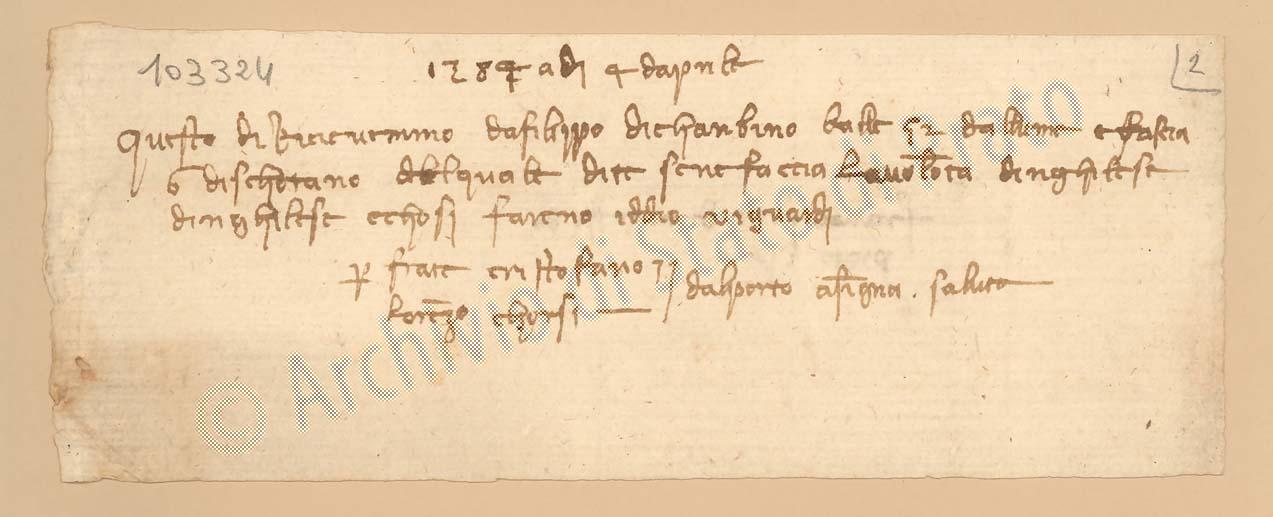 103324
2
1384 adi 4 daprile
Questo di Ricievemmo dafilippo dichanbino balle 52 dallume e fascia
6 dischotano delquale dite sene faccia La volōta dinghilese
dinghilese e chosi fareno iddio vi guardi
frate cristofano
dalporto asīgna. saluta
Lorēzo chorsi
© Archivio di Stato di Prato